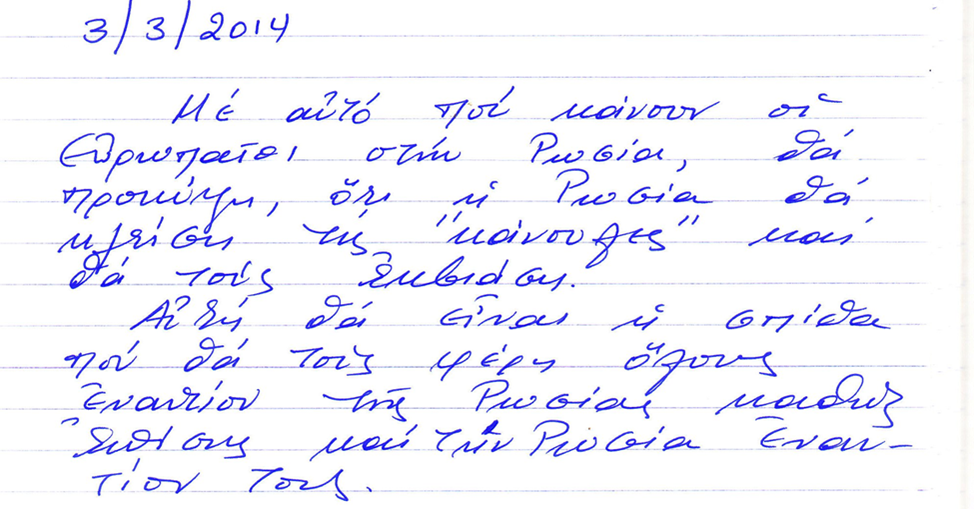 3/3/2014
Μέ αὐτό πού κάνουν οἱ
Εὐρωπαῖοι στήν Ρωσία, θά
προκύψη, ὅτι ἡ Ρωσία θά
κλείση τίς "κάνουλες" καί
θά τούς ἐκβιάση.
Αὐτή θά εἶναι ἡ σπίθα
πού θά τούς φέρη ὅλους
ἐναντίον τῆς Ρωσίας καθώς
ἐπίσης καί τήν Ρωσία ἐναν-
τίον τους.